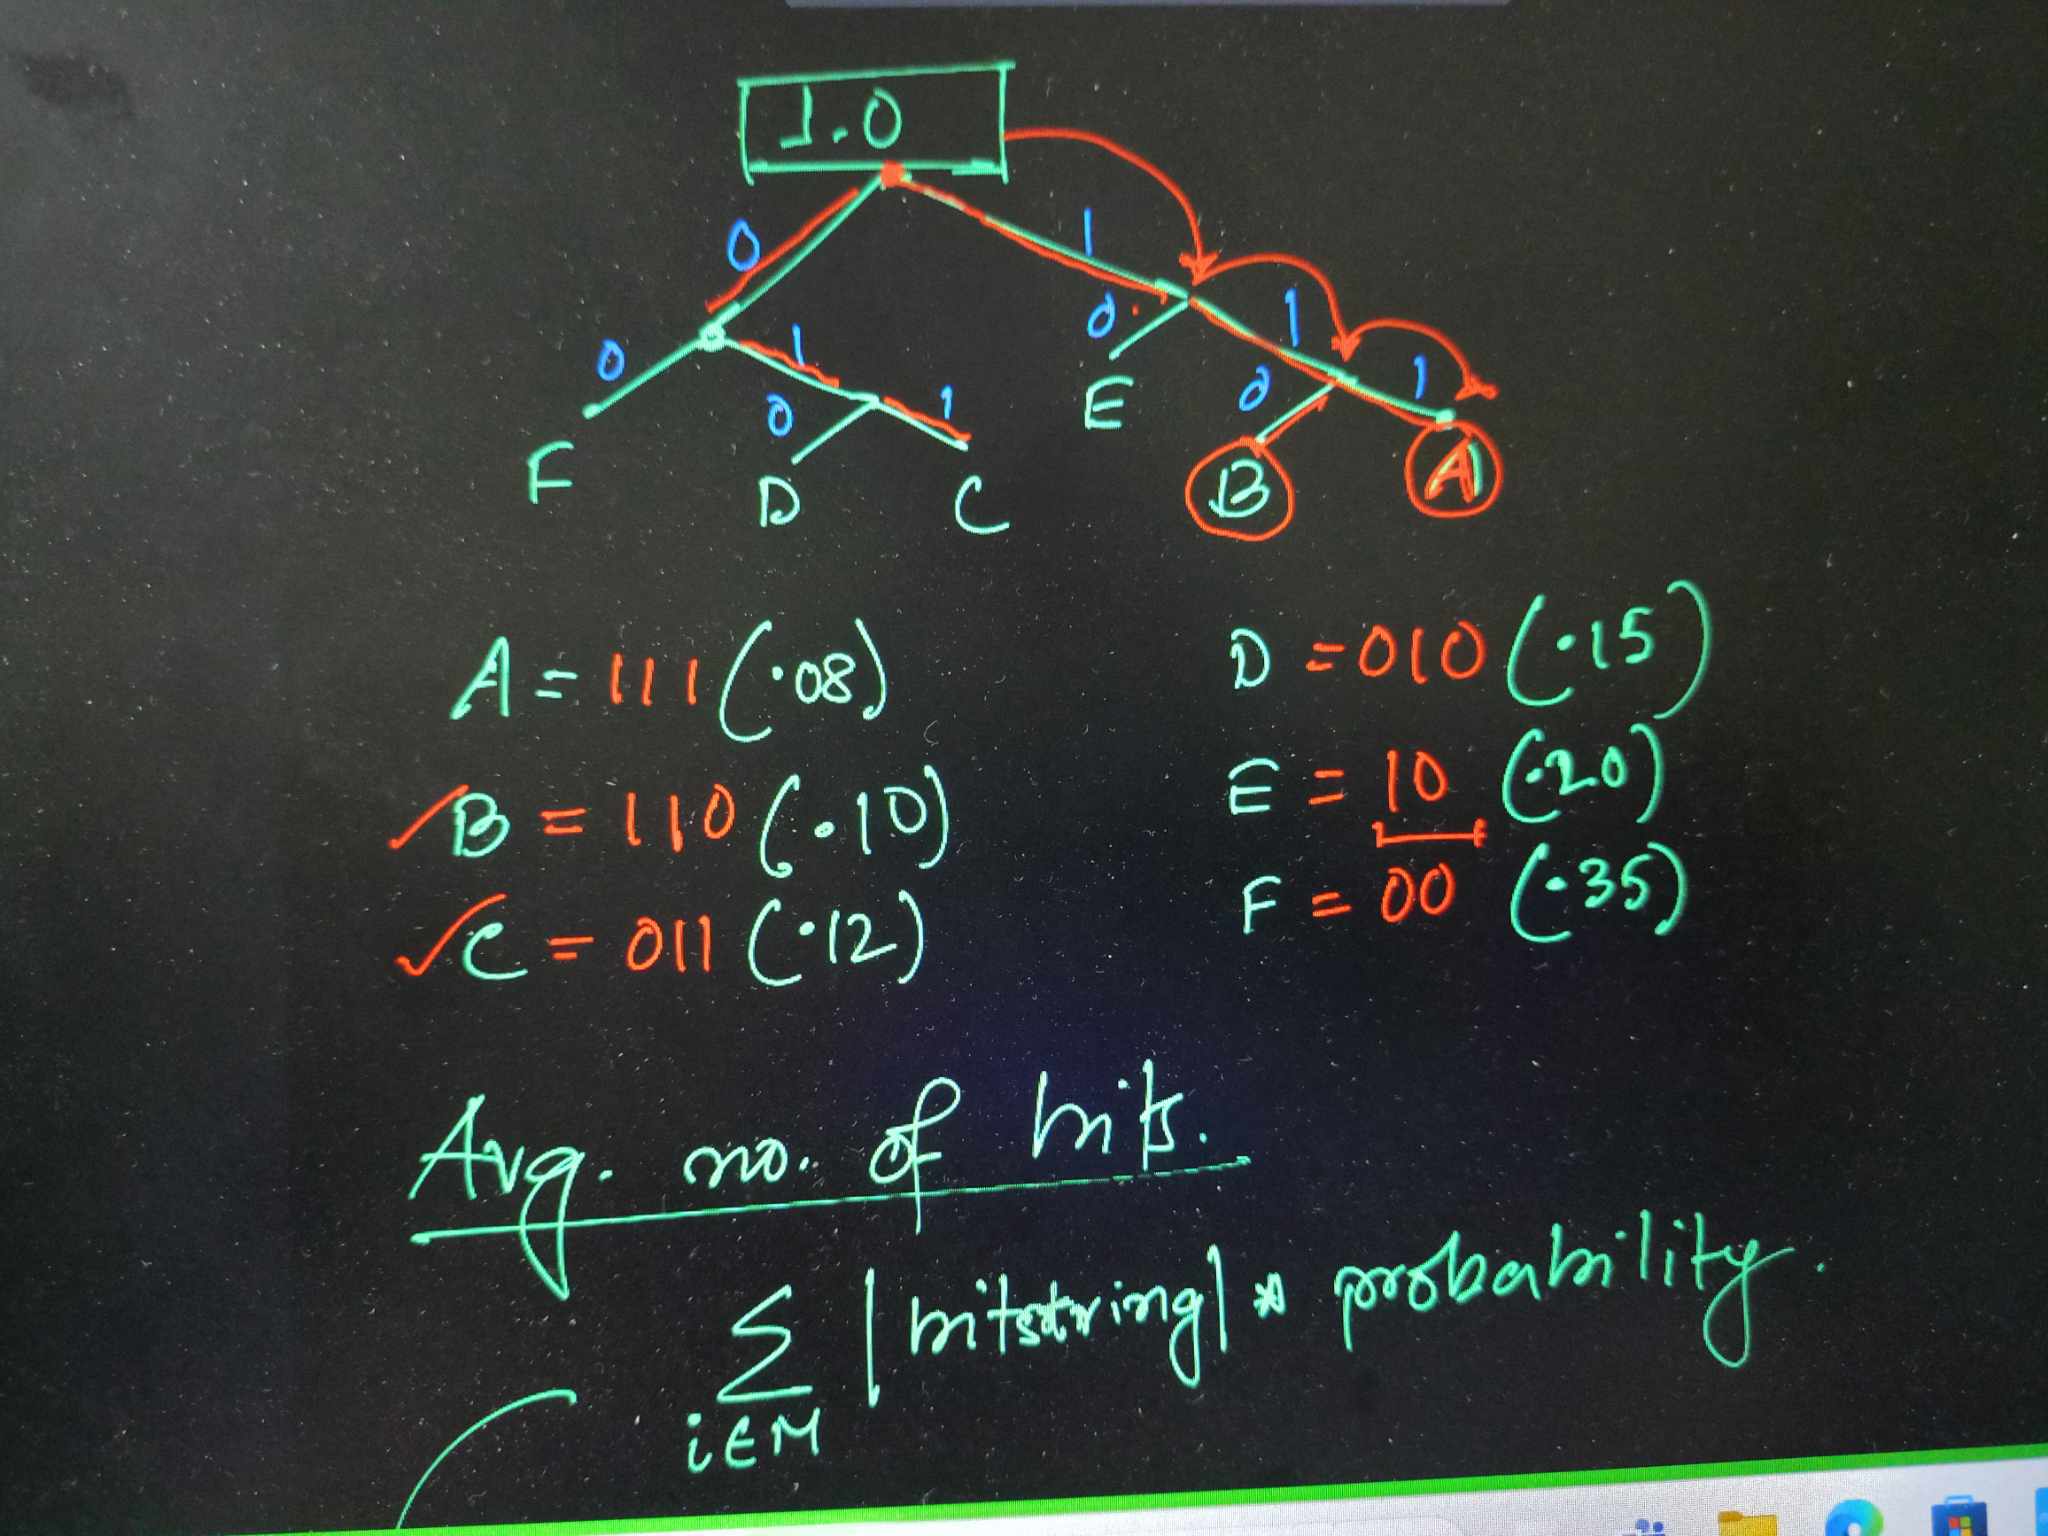 1.0
0 1
0 1 0 1
0 1 0 1
F D C E B A
A = 111 (.08)
B = 110 (.10)
C = 011 (.12)
D = 010 (.15)
E = 10 (.20)
F = 00 (.35)
Avg. no. of bits.
Σ |bitstring| * probability.
i∈M